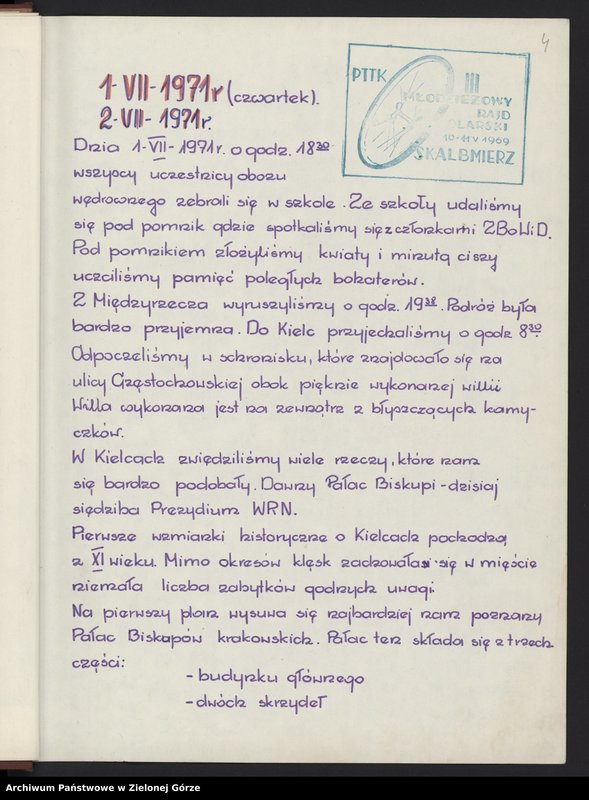 4
1-VII-1971r (czwartek).
2-VII-1971r.
PTTK
III
MŁODZIEŻOWY
RAJD
OLARSKI
10-11 V 1969
SKALBMIERZ
Dnia 1-VII-1971r. o godz. 18³⁰
wszyscy uczestnicy obozu
wędrownego zebrali się w szkole. Ze szkoły udaliśmy
się pod pomnik gdzie spotkaliśmy się z członkami ZBoWiD.
Pod pomnikiem złożyliśmy kwiaty i minutą ciszy
uczciliśmy pamięć poległych bohaterów.
Z Międzyrzecza wyruszyliśmy o godz. 19³⁸. Podróż była
bardzo przyjemna. Do Kielc przyjechaliśmy o godz 8³⁰.
Odpoczeliśmy w schronisku, które znajdowało się na
ulicy Częstochowskiej obok pięknie wykonanej willii
Willa wykonana jest na zewnątrz z błyszczących kamy-
czków.
W Kielcach zwiędziliśmy wiele rzeczy, które nam
się bardzo podobały. Dawny Pałac Biskupi - dzisiaj
siędziba Prezydium WRN.
Pierwsze wzmianki historyczne o Kielcach pochodzą
z XI wieku. Mimo okresów klęsk zachowała się w mięście
niemała liczba zabytków godnych uwagi.
Na pierwszy plan wysuwa się najbardziej nam poznany
Pałac Biskupów krakowskich. Pałac ten składa się z trzech
części:
- budynku głównego
- dwóch skrzydeł
Archiwum Państwowe w Zielonej Górze